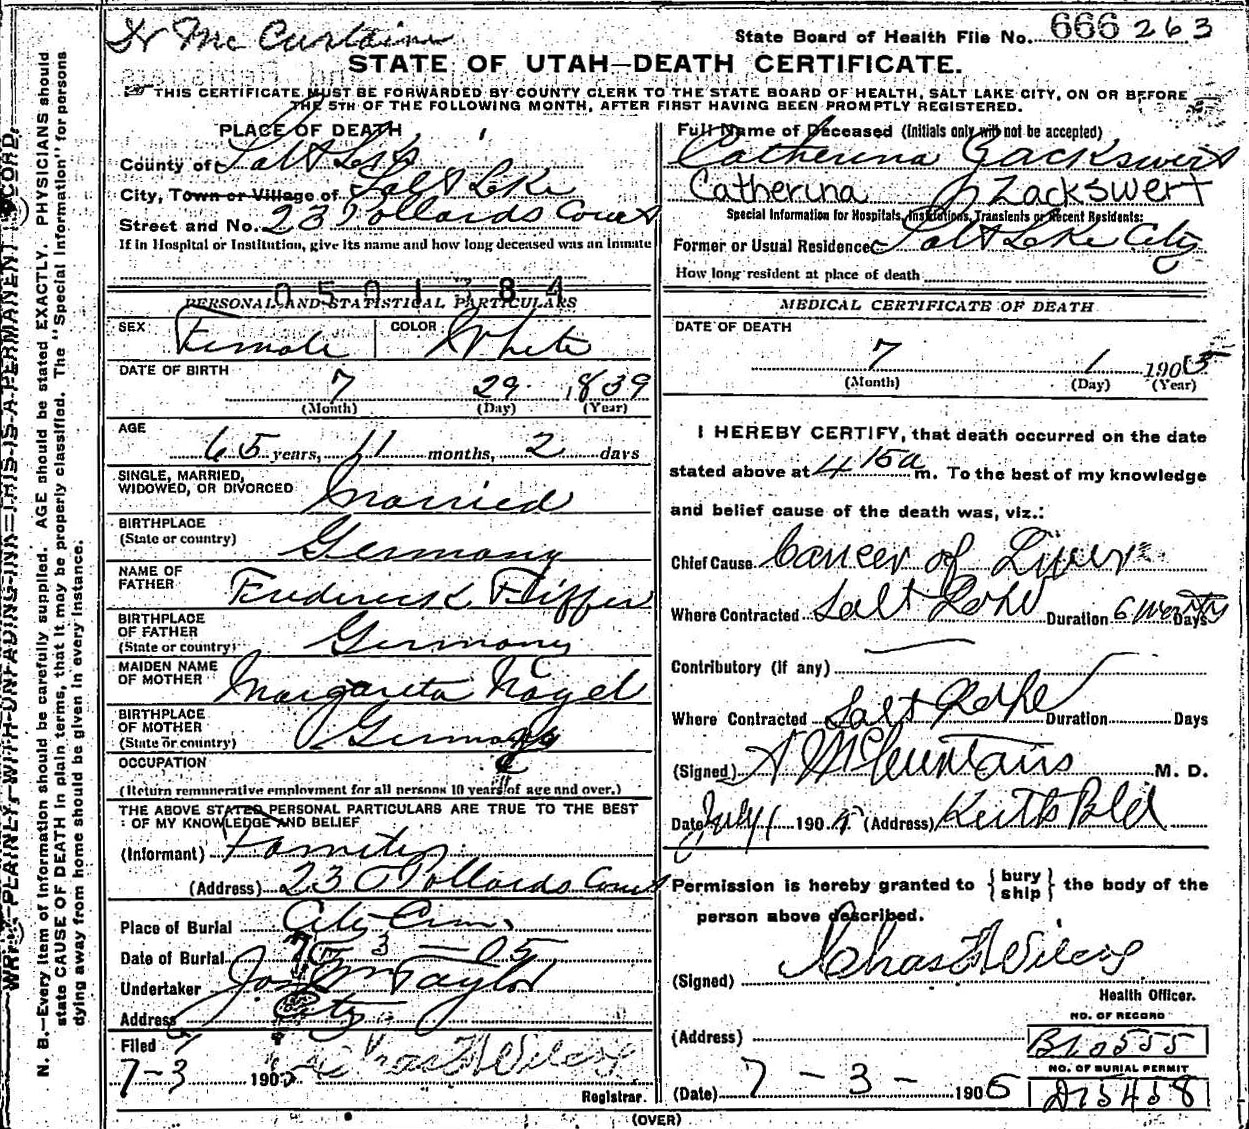 Mc Curtain
State Board of Health File No. 666 263
STATE OF UTAH—DEATH CERTIFICATE.
THIS CERTIFICATE MUST BE FORWARDED BY COUNTY CLERK TO THE STATE BOARD OF HEALTH, SALT LAKE CITY, ON OR BEFORE
THE 5TH OF THE FOLLOWING MONTH, AFTER FIRST HAVING BEEN PROMPTLY REGISTERED.
WRITE PLAINLY, WITH UNFADING INK—THIS IS A PERMANENT RECORD.
N. B.—Every item of information should be carefully supplied. AGE should be stated EXACTLY. PHYSICIANS should
state CAUSE OF DEATH in plain terms, that it may be properly classified. The "Special Information" for persons
dying away from home should be given in every instance.
PLACE OF DEATH
County of Salt Lake
City, Town or Village of Salt Lake
Street and No. 23 Pollards Court
If in Hospital or Institution, give its name and how long deceased was an inmate
0501784
PERSONAL AND STATISTICAL PARTICULARS
SEX Female COLOR White
DATE OF BIRTH
7 29 1839
(Month) (Day) (Year)
AGE
65 years, 11 months, 2 days
SINGLE, MARRIED,
WIDOWED, OR DIVORCED Married
BIRTHPLACE
(State or country) Germany
NAME OF
FATHER Frederick Fiffer
BIRTHPLACE
OF FATHER
(State or country) Germany
MAIDEN NAME
OF MOTHER Margareta Nagel
BIRTHPLACE
OF MOTHER
(State or country) Germany
OCCUPATION
(Return remunerative employment for all persons 10 years of age and over.)
THE ABOVE STATED PERSONAL PARTICULARS ARE TRUE TO THE BEST
OF MY KNOWLEDGE AND BELIEF
(Informant) Family
(Address) 23 Pollards Court
Place of Burial City Cem.
Date of Burial 7 3 — 05
Undertaker Jos Wm Taylor
Address City
Filed
7-3 1905 Chas F Wilcox
Registrar.
Full Name of Deceased (Initials only will not be accepted)
Catherina Zackswert
Catherina Zackswert
Special Information for Hospitals, Institutions, Transients or Recent Residents:
Former or Usual Residence Salt Lake City
How long resident at place of death
MEDICAL CERTIFICATE OF DEATH
DATE OF DEATH
7 1 1905
(Month) (Day) (Year)
I HEREBY CERTIFY, that death occurred on the date
stated above at 4 15 a m. To the best of my knowledge
and belief cause of the death was, viz.:
Chief Cause Cancer of Liver
Where Contracted Salt Lake Duration 6 months Days
Contributory (if any)
Where Contracted Salt Lake Duration Days
(Signed) M. D.
Date July 1 1905 (Address) Keith Bld
Permission is hereby granted to { bury ship } the body of the
person above described.
(Signed) Chas F Wilcox
Health Officer.
(Address)
NO. OF RECORD
B10555
NO. OF BURIAL PERMIT
(Date) 7 - 3 - 1905 A15458
(OVER)